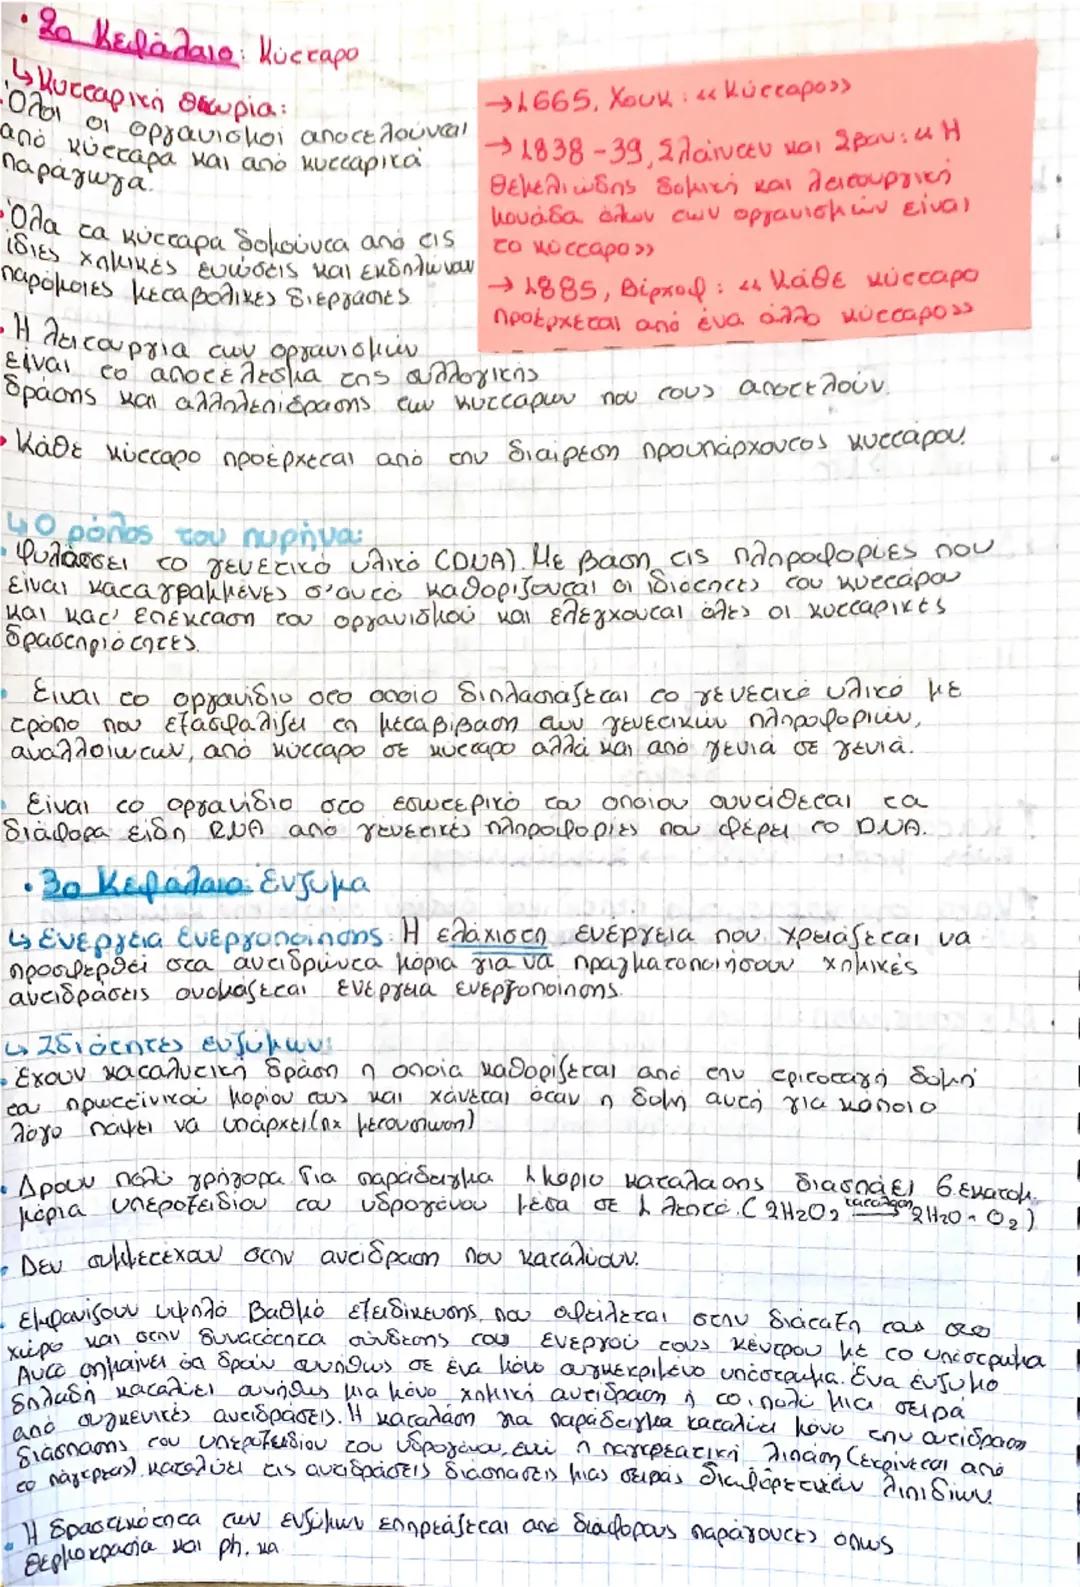 • 2ο Κεφάλαιο: Κύτταρο
↳ Κυτταρική θεωρία:
• Όλοι οι οργανισμοί αποτελούνται
από κύτταρα και από κυτταρικά
παράγωγα.
• Όλα τα κύτταρα δομούνται από τις
ίδιες χημικές ενώσεις και εκδηλώνουν
παρόμοιες μεταβολικές διεργασίες
• Η λειτουργία των οργανισμών
είναι το αποτέλεσμα της συλλογικής
δράσης και αλληλεπίδρασης των κυττάρων που τους αποτελούν.
• Κάθε κύτταρο προέρχεται από την διαίρεση προυπάρχοντος κυττάρου.
→ 1665, Χουκ: «Κύτταρο»
→ 1838-39, Σλάιντεν και Σβαν: «Η
θεμελιώδης δομική και λειτουργική
μονάδα όλων των οργανισμών είναι
το κύτταρο»
→ 1885, Βίρχοφ: «Κάθε κύτταρο
προέρχεται από ένα άλλο κύτταρο»
↳ Ο ρόλος του πυρήνα:
• Φυλάσσει το γενετικό υλικό (DNA). Με βάση τις πληροφορίες που
είναι καταγραμμένες σ'αυτό καθορίζονται οι ιδιότητες του κυττάρου
και κατ' επέκταση του οργανισμού και ελέγχονται όλες οι κυτταρικές
δραστηριότητες.
• Είναι το οργανίδιο στο οποίο διπλασιάζεται το γενετικό υλικό με
τρόπο που εξασφαλίζει τη μεταβίβαση των γενετικών πληροφοριών,
αναλλοίωτων, από κύτταρο σε κύτταρο αλλά και από γενιά σε γενιά.
• Είναι το οργανίδιο στο εσωτερικό του οποίου συντίθεται τα
διάφορα είδη RNA από γενετικές πληροφορίες που φέρει το DNA.
• 3ο Κεφάλαιο: Ενζυμα
↳ Ενέργεια Ενεργοποίησης: Η ελάχιστη ενέργεια που χρειάζεται να
προσφερθεί στα αντιδρώντα μόρια για να πραγματοποιήσουν χημικές
αντιδράσεις ονομάζεται ενέργεια ενεργοποίησης.
↳ Ιδιότητες ενζύμων:
• Έχουν καταλυτική δράση η οποία καθορίζεται από την τριτοταγή δομή
του πρωτεϊνικού μορίου τους και χάνεται όταν η δομή αυτή για κάποιο
λόγο παψει να υπάρχει (πχ μετουσίωση)
• Δρουν πολύ γρήγορα. Για παράδειγμα 1 μόριο καταλάσης διασπάει 6 εκατομ.
μόρια υπεροξειδίου του υδρογόνου μέσα σε 1 λεπτό. (2H2O2 καταλάση→ 2H2O + O2)
• Δεν συμμετέχουν στην αντίδραση που καταλύουν.
• Εμφανίζουν υψηλό βαθμό εξειδίκευσης, που οφείλεται στην διάταξη τους στο
χώρο και στην δυνατότητα σύνδεσης του ενεργού τους κέντρου με το υπόστρωμα
Αυτό σημαίνει ότι δρουν συνήθως σε ένα μόνο συγκεκριμένο υπόστρωμα. Ένα ένζυμο
δηλαδή καταλύει συνήθως μια μόνο χημική αντίδραση ή το πολύ μια σειρά
από συγγενικές αντιδράσεις. Η καταλάση για παράδειγμα καταλύει μόνο την αντίδραση
διάσπασης του υπεροξειδίου του υδρογόνου, ενώ η παγκρεατική λιπάση (εκρίνεται από
το πάγκρεας), καταλύει τις αντιδράσεις διάσπασης μιας σειράς διαφορετικών λιπιδίων.
• Η δραστικότητα των ενζύμων επηρεάζεται από διάφορους παράγοντες όπως
θερμοκρασία και ph. κα